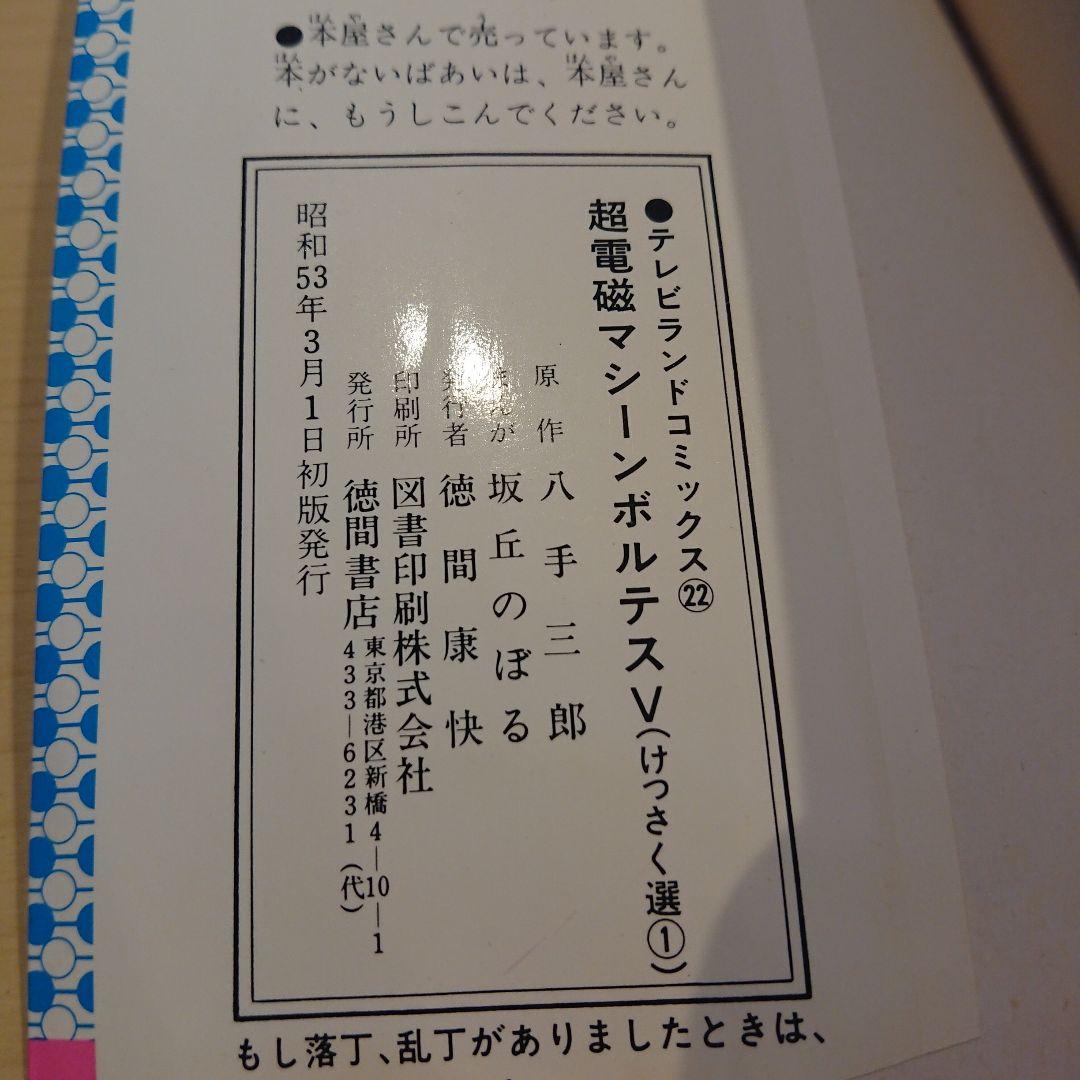 ●本屋さんで売っています。
本がないばあいは、本屋さん
に、もうしこんでください。
●テレビランドコミックス㉒
超電磁マシーンボルテスV(けっさく選①)
原作 八手三郎
まんが 坂丘のぼる
発行者 徳間康快
印刷所 図書印刷株式会社
発行所 徳間書店 東京都港区新橋4―10―1
433―6231(代)
昭和53年3月1日初版発行
もし落丁、乱丁がありましたときは、